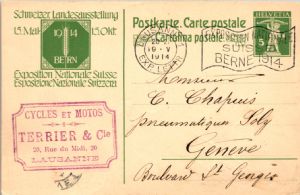 Schweizer. Landesausstellung
15. Mai 15. Okt.
1914
BERN
Exposition Nationale Suisse
Esposizione Nazionale Svizzera
Postkarte. Carte postale
Cartolina postale
1914
SUISSE
BERNE 1914
HELVETIA
5
CYCLES ET MOTOS
TERRIER & Cie
20, Rue du Midi, 20
LAUSANNE
Monsieur
C. Chapuis
pneumatiques Poly
Genève
Boulevard St Georges